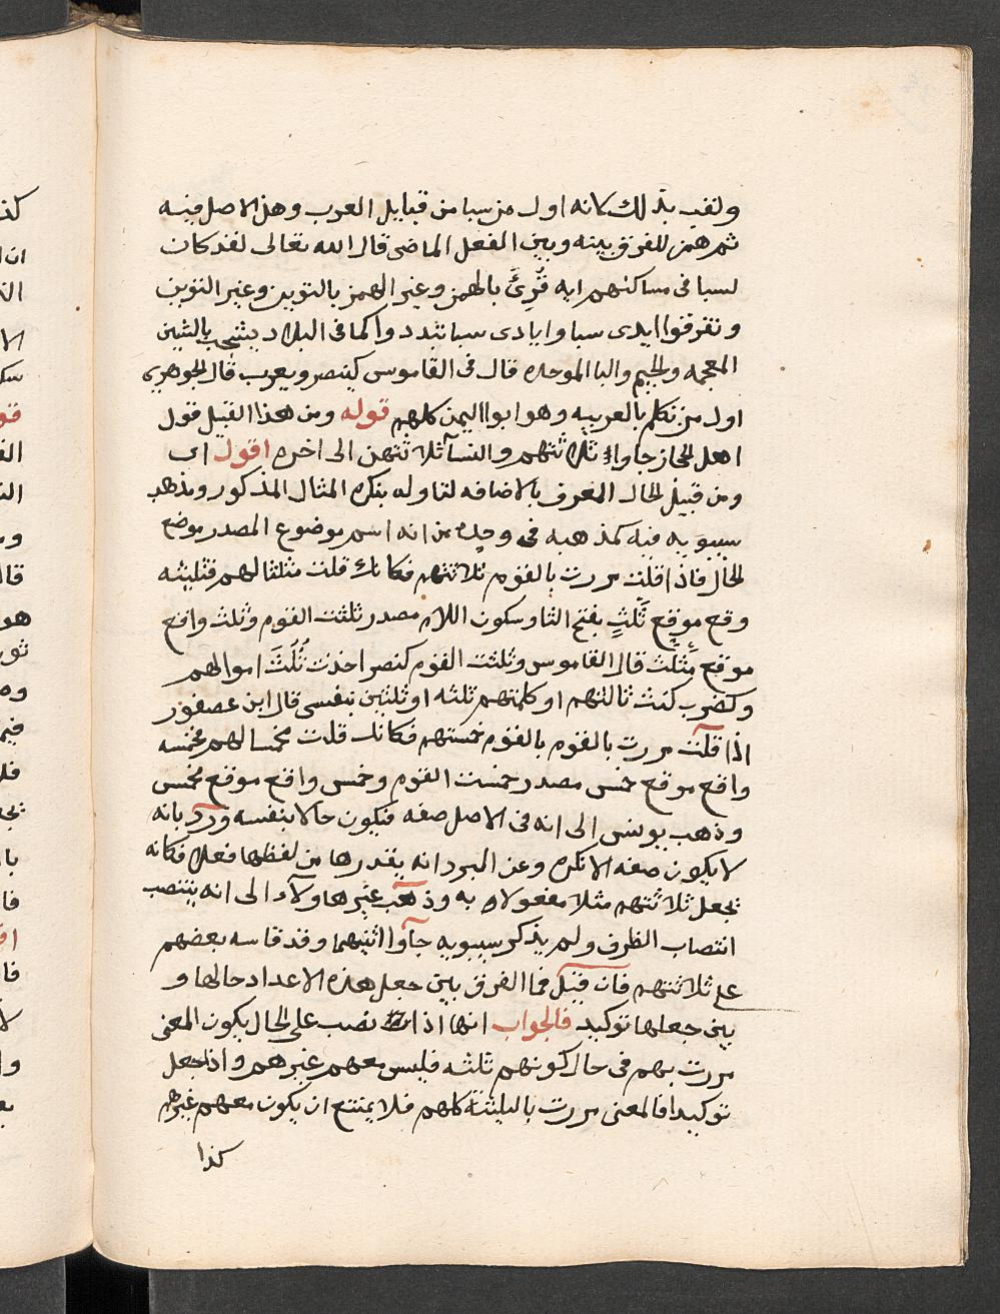 ولقب بذلك كانه اول من سبا من قبايل العرب وهذا لاصل فيه
ثم همز للفرق بينه وبين الفعل الماضى قال الله تعالى لقد كان
لسبا فى مساكنهم ايه قُرِئَ بالهمز وغير الهمز بالتوين وغير التوين
وتفرقوا ايدى سبا وايادى سبا تبددوا كما فى البلاد يشجب بالشين
المعجمه والجيم والبا الموحده قال فى القاموس كينصر ويعرب قال الجوهرى
اول من تكلم بالعربيه وهو ابوا اليمن كلهم قوله ومن هذا القبيل قول
اهل الحجاز جاوا ثلاثتهم والنسآ ثلاثتهن الى اخره اقول اى
ومن قبيل الحال المعرف بالاضافه لتاوله بنكره المثال المذكور ومذهب
سيبويه فيه كمذهبه فى وحده من انه اسم موضوع المصدر موضع
الحال فاذا قلت مررت بالقوم ثلاثتهم فكانك قلت مثلثا لهم فثليثه
وقع موقع ثَلْثٍ بفتح الثا وسكون اللام مصدر ثلثت القوم وثلث واقع
موقع مثلّث قال القاموس وثلثت القوم كنصر اخذت ثُلُثَ اموالهم
وكضرب كنت ثالثهم او كملتهم ثلثه او ثلثين بنفسى قال ابن عصفور
اذا قلت مررت بالقوم بالقوم خمستهم فكانك قلت مخمسا لهم فخمسه
واقع موقع خمس مصدر خمست القوم وخمس واقع موقع مخمس
وذهب يونس الى انه فى الاصل صفه فيكون حالا بنفسه ورد بانه
لا يكون صفه الا نكره وعن المبرد انه يقدرها من لفظها فعلا فكانه
يجعل ثلاثتهم مثلا مفعولا به وذهب غير هاولآء الى انه ينتصب
انتصاب الظرف ولم يذكر سيبويه جآوا اثنيهما وقد قاسه بعضهم
على ثلاثتهم فان قيل فما الفرق بين جعل هذه الاعداد حالها و
بين جعلها توكيد فالجواب انها اذا نصب على الحال يكون المعنى
مررت بهم فى حال كونهم ثلثه فليس معهم غيرهم واذا جعل
توكيدا فالمعنى مررت بالثلثة كلهم فلا يمتنع ان يكون معهم غيرهم
كذا